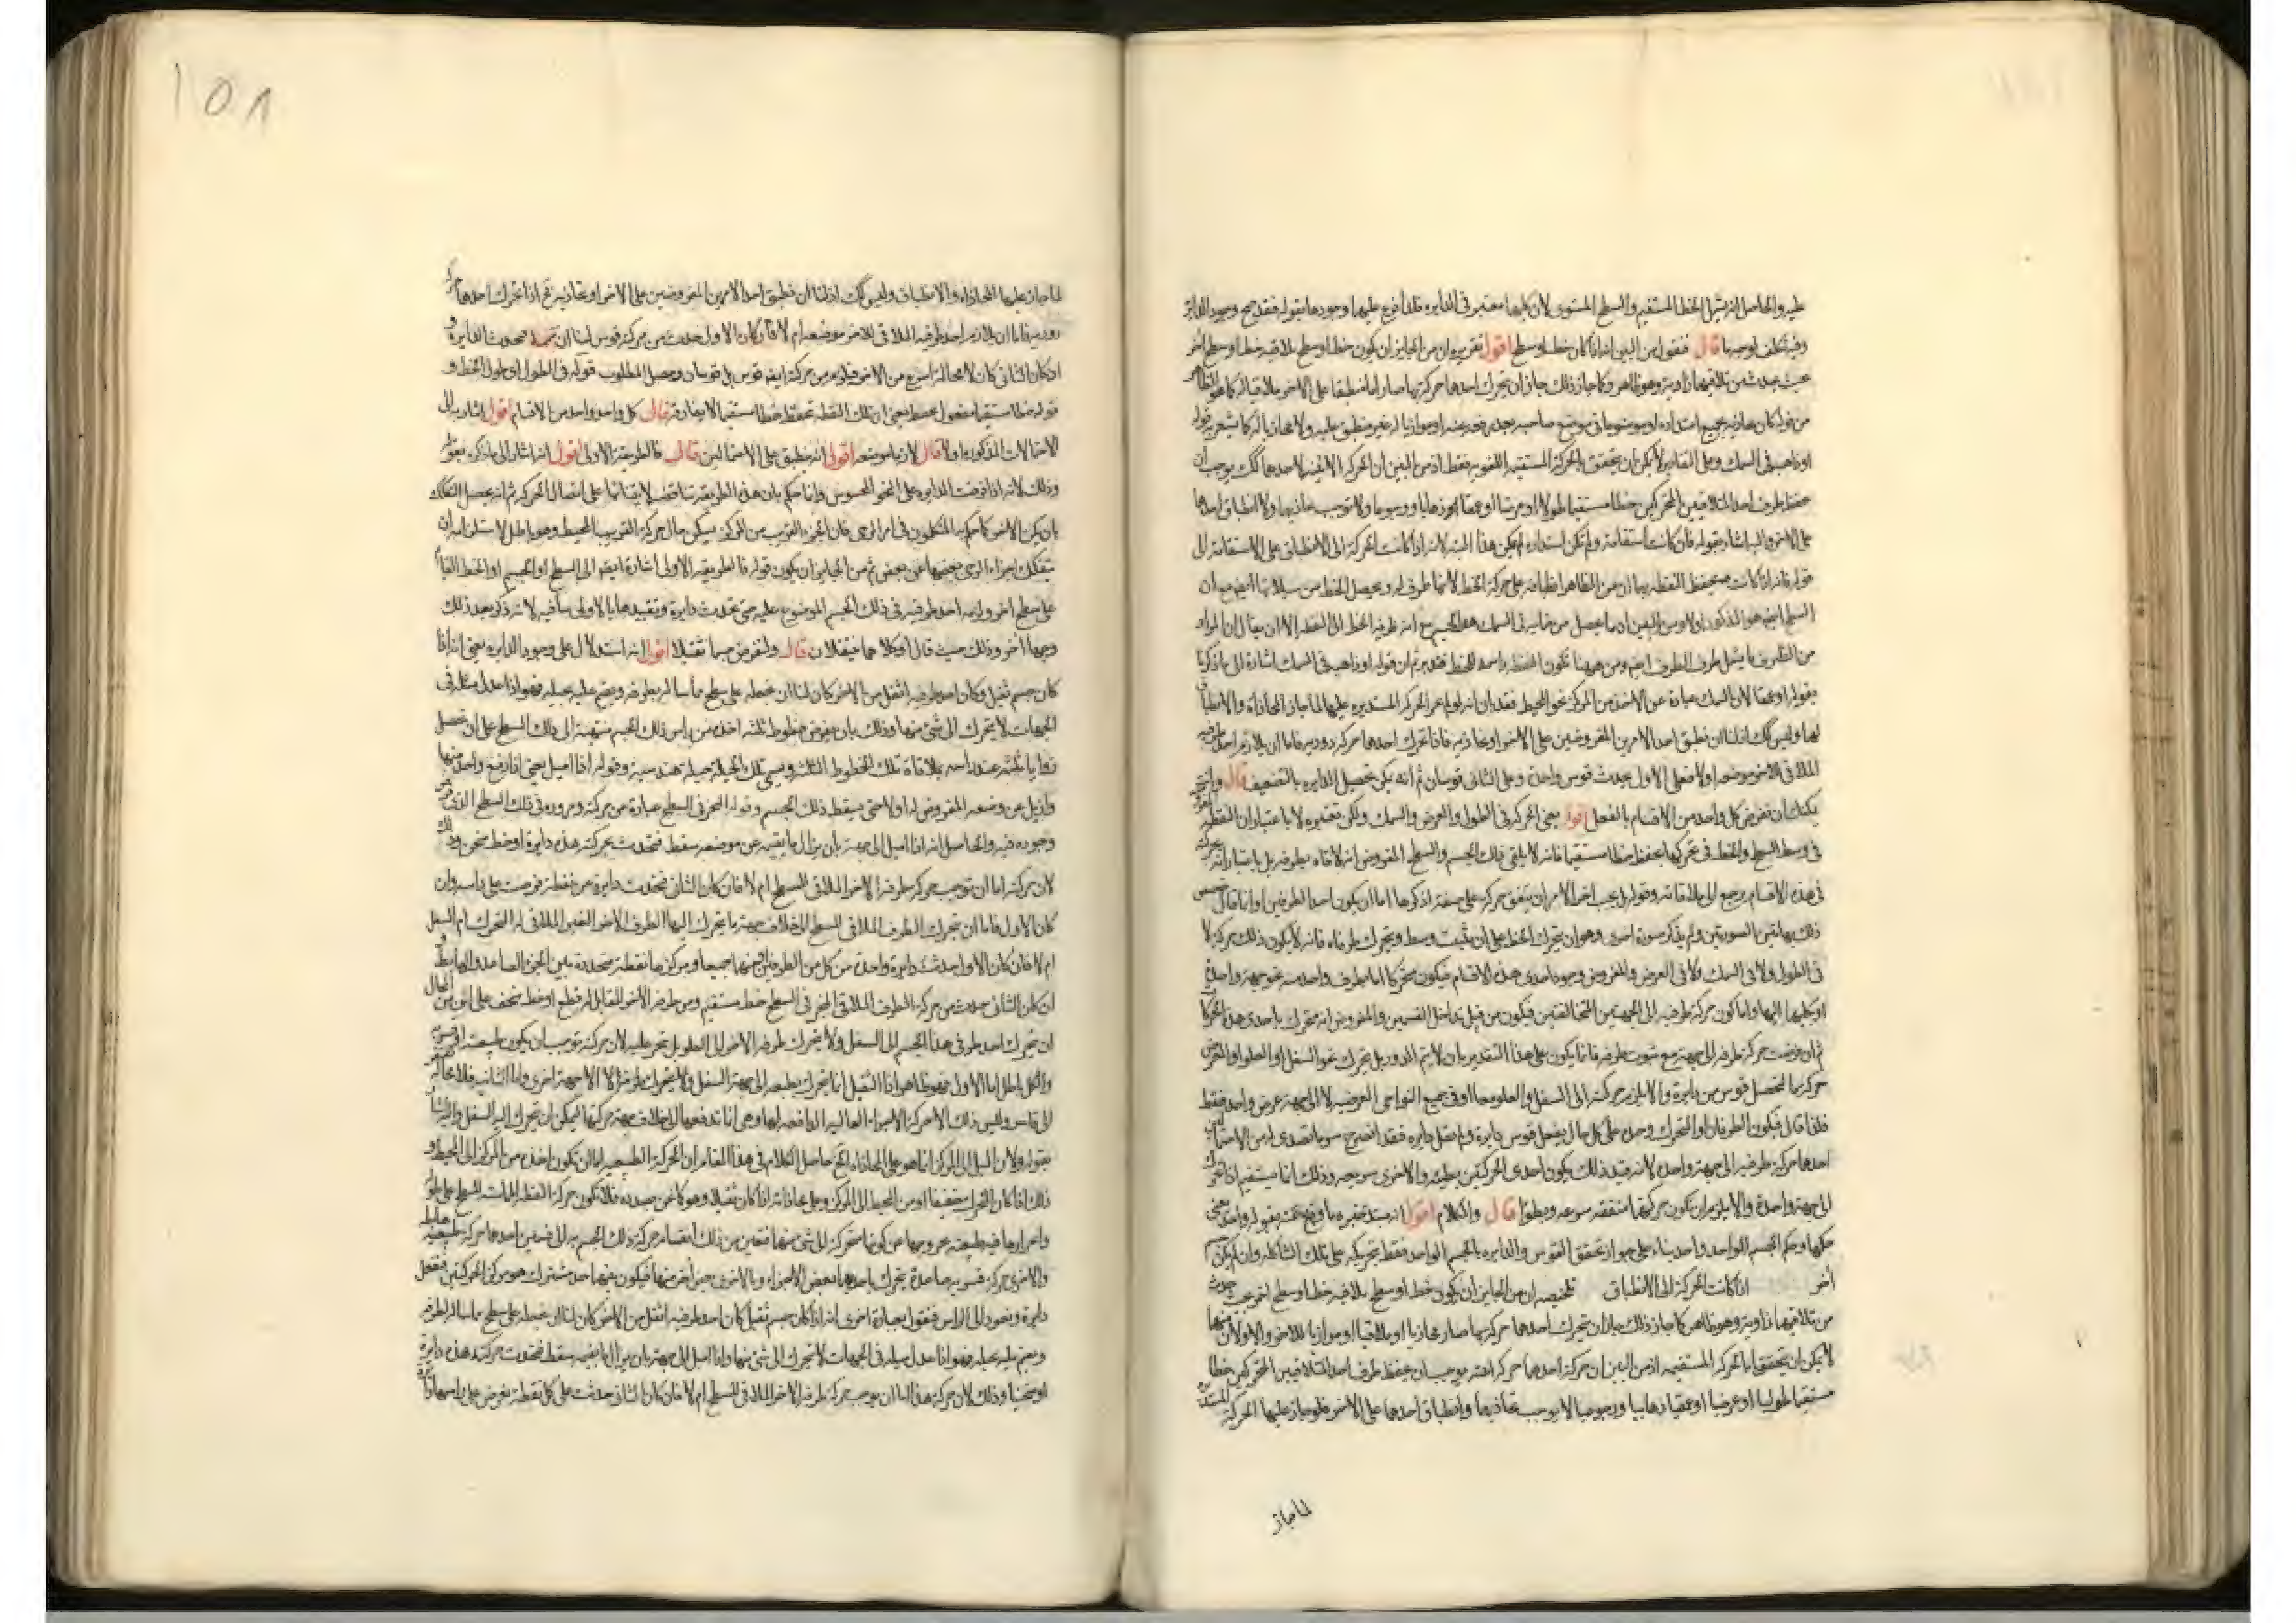 عليه والحاصل انه يشمل الخط المستقيم والسطح المستوى لان كليهما معتبر فى الدايره فلذا فرع عليهما وجودها بقوله فقد صح وجود الدايرة
وفيه تكلف لوجه ما قال فنقول من البين انه اذا كان خط او سطح اقول تقريره ان من الجايز ان يكون خط او سطح يلاقيه خط او سطح اخر
بحيث يحدث من تلاقيهما زاوية وهو ظاهر وكما جاز ذلك جاز ان يتحرك احدهما حركة بها صار اما منطبقا على الاخر ملاقيا له كما هو الظاهر
من قوله كان محاذيه بجميع امتداده او موضوعا فى موضع صاحبه بعد رفعه عنه او موازيا له غير منطبق عليه ولا محاذيا له كما يشعر به قوله
او ذاهب فى السمك وعلى التقادير لا يمكن ان يتحقق بالحركة المستقيمة فقط اذ من البين ان الحركة الاينية لاحدهما كك يوجب ان
حفظ طرف احد المتلاقيين المتحركين خطا مستقيما طولا او عرضا او عمقا ذهابا ورجوعا ولا توجب محاذيهما ولا انطباق احدهما
على الاخر واليه اشار بقوله فان كانت استقامة ولم تكن استدارة لم يكن هذا البتة لانه اذا كانت الحركة الى الانطباق على الاستقامة الى
قوله فانه اذا كانت يتحفظ النقطة بها ان من الظاهر انطباقه على حركة الخط لانها طرف له ويحصل الخط من سيلانها ايضا مع ان
السطح ايضا هو المذكور اولا ومن البين ان ما يحصل من قيامه فى السمك هو الجسم مع انه طرفه الخط لا النقطة الا ان يقال ان المراد
من الطرف ما يشمل طرف الطرف ايضا ومن ههنا تكون النقطة راسمة للخط فتدبر ثم ان قوله او ذاهب فى السمك اشارة الى ما ذكرنا
بقوله او عمقا لان السمك عبارة عن الاخذ من المركز نحو المحيط فقد بان انه لولا امر الحركة المستديرة عليهما لما جاز المحاذاة والانطباق
لها وليس كك اذ لنا ان نطبق احد الامرين المفروضين على الاخر او نحاذيه فاذا تحرك احدهما حركة دورية فاما ان يلازم احد طرفيه
الملاقى للاخر موضعه او لا فعلى الاول يحدث قوس واحدة وعلى الثانى قوسان ثم انه يمكن تحصيل الدايره بالتضعيف قال وانت
يمكنك ان تفرض كل واحد من الاقسام بالفعل اقول يعنى الحركة فى الطول والعرض والسمك ولكن تعتبره لا باعتبار ان النقطة
فى وسط السطح والخط فى تحركها يحفظ خطا مستقيما فانه لا يلقى ذلك الجسم والسطح المفروض انه لاقاه بطرفه بل باعتبار انه
فى هذه الاقسام يرجع الى ملاقاته وقوله بل يجب اخر الامر ان يتفق حركة على صفة اذكرها اما ان يكون احد الطرفين او انما قال
ذلك بهاتين الصورتين ولم يذكر صورة اخرى وهو ان يتحرك الخط على ان يثبت وسطه ويتحرك طرفاه فانه لا يكون ذلك حركة لا
فى الطول ولا فى السمك ولا فى العرض والمفروض وجود احدى هذه الاقسام فيكون متحركا اما بطرف واحد منه نحو جهة واحدة
او بكليهما اليها واما كون حركة طرفيه الى الجهتين المتخالفتين فيكون من قبيل تداخل القسمين والمفروض انه متحرك باحدى هذه الحركات
ثم ان فرضت حركة طرفه الى جهة مع ثبوت طرفه فانما يكون على هذا التقدير بان لا يتم الدور بل يتحرك نحو السفل او العلو او العرض
حركة بها تحصل قوس من دايرة والا يلزم حركته الى السفل والعلو معا او فى جميع النواحى العرضية لا الى جهة عرض واحد فقط
فلذا قال فيكون الطرفان او المتحرك وحده على كل حال يفعل قوس دايرة ولم يقل دايرة فقد اتضح سر ما تصدى له من الاحتمالين
احدهما حركة طرفيه الى جهة واحدة لانه قيد ذلك بكون احدى الحركتين بطيئة والاخرى سريعة وذلك انما يستقيم اذا تحرك
الى جهة واحدة والا يلزم ان تكون حركتهما متفقة سرعة وبطوا قال والكلام اقول انه مبتدأ خبره ما وقع عنه بقوله واحد يعنى
حكمها وحكم الجسم الواحد واحد بناء على جواز تحقق القوس والدايره بالجسم الواحد فقط بتحريكه على تلك الشاكلة وان لم يكن جسم
اخر اذا كانت الحركة الى الانطباق تلخيصه ان من الجايز ان يكون خط او سطح يلاقيه خط او سطح اخر بحيث حدث
من تلاقيهما زاوية وهو ظاهر كما جاز ذلك جاز ان يتحرك احدهما حركة بها صار محاذيا او ملاقيا او موازيا للاخر والاولان منهما
لا يمكن ان يتحقق بالحركة المستقيمة اذ من البين ان حركة احدهما حركة اينية يوجب ان يحفظ طرف احد المتلاقيين المتحركين خطا
مستقيما طوليا او عرضيا او عمقيا ذهابيا ورجوعيا لا يوجب محاذيهما وانطباق احدهما على الاخر فلو جاز عليهما الحركة المستديرة
لما جاز
١٥٨
لما جاز عليهما المحاذاة والانطباق وليس كك اذ لنا ان نطبق احد الامرين المفروضين على الاخر او نحاذيه ثم اذا تحرك احدهما حركة
دورية فاما ان يلازم احد طرفيه الملاقى للاخر موضعه ام لا فان كان الاول حدث من حركته قوس لنا ان نتممه فحدث الدايرة و
ان كان الثانى كان لا محالة اسرع من الاخر فيلزم من حركته ايضا قوس بل قوسان وحصل المطلوب قوله فى الطول او طول الخط و
قوله خطا مستقيما مفعول يحفظ يعنى ان تلك النقطة تحفظ خطا مستقيما لا يفارقه قال كل واحد واحد من الاقسام اقول اشار به الى
الاحتمالات المذكورة اولا قال لازما موضعه اقول انه ينطبق على الاحتمالين قال فالطريقة الاولى اقول انه اشار الى ما ذكره بقوله
وذلك لانه اذا فرضت الدايره على النحو المحسوس وانما حكم بان هذه الطريقة تناقض لابتنائها على اتصال الحركة ثم انه يحصل التفكك
بان يكن الاخر كما حكم به المتكلمون فى امر الرحى فان الجزء القريب من المركز يسكن حال حركة القريب المحيط وهو باطل لاستلزامه ان
يتفكك اجزاء الرحى بعضها عن بعض ثم من الجايز ان يكون قوله فالطريقة الاولى اشارة ايضا الى السطح او الجسم او الخط القائم
على سطح اخر ولزم احد طرفيه فى ذلك الجسم الموضوع عليه حتى تحدث دايرة وتقييدها بالاولى ينافيه لانه ذكر بعد ذلك
وجها اخر وذلك حيث قال او كلاهما ينتقلان قال ولنفرض جسما ثقيلا اقول انه استدلال على وجود الدايره يعنى انه اذا
كان جسم ثقيل وكان احد طرفيه اثقل من الاخر كان لنا ان نجعله على سطح مماسا له بطرفه ويقوم عليه بحيلة فهو اذا عدل ميله فى
الجهات لا يتحرك الى شئ منها وذلك بان يفرض خطوط ثلثة اخذه من راس ذلك الجسم منتهية الى ذلك السطح على ان تحصل
زوايا ثلثة عند راسه بملاقاة تلك الخطوط الثلثة ويسمى تلك الحيلة حيلة هندسية وقوله اذا اميل يعنى اذا رفع واحد منها
وازيل عن وضعه المفروض له اولا حتى يسقط ذلك الجسم وقوله فى السطح عبارة عن حركته ومروره فى ذلك السطح الذى فرض
وجوده فيه والحاصل انه اذا اميل الى جهة بان يزال ما يقيمه عن موضعه سقط فتحدث بحركته هذه دايرة او خط منحن وذلك
لان حركته اما ان توجب حركة طرفه الاخر الملاقى للسطح ام لا فان كان الثانى فتحدث دايرة من نقطة فرضت على راسه وان
كان الاول فاما ان يتحرك الطرف الملاقى للسطح الى خلاف جهة ما يتحرك اليها الطرف الاخر الغير الملاقى له المتحرك ام السفل
ام لا فان كان الاول حدثت دايرة واحدة من كل من الطرفين منهما جميعا ومركزها نقطة متحددة بين الجزء الصاعد والهابط و
ان كان الثانى حدث من حركة الطرف الملاقى المنجر فى السطح خط مستقيم ومن طرفه الاخر المقابل له قطع او خط منحن على ان من المحال
ان يتحرك احد طرفى هذا الجسم الى السفل ولا يتحرك طرفه الاخر الى العلو بل تجر عليه لان حركته توجب ان يكون طبيعية او قسرية
والكل باطل اما الاول فهو ظاهر اذ الثقيل انما يتحرك بطبعه الى جهة السفل ولا يتحرك طرفه الا الى جهة اخرى واما الثانية فلا محالة
الى قاس وليس ذلك الا حركة الاجزاء العالية الدافعة لها وهى انما تدفعها الى خلاف جهة حركتها ليمكن ان يتحرك اليه السفل واليه اشار
بقوله ولان الميل الى المركز انما هو على المحاذاة الخ حاصل الكلام فى هذا المقام ان الحركة الطبيعية اما ان تكون اخذه من المركز الى المحيط و
ذلك اذا كان المتحرك خفيفا او من المحيط الى المركز وعلى محاذاته اذا كان ثقيلا وهو كما نحن بصدده فلا تكون حركة النقطة المماسة للسطح على طوله
وانجرارها فيه طبيعية لخروجها عن كونها متحركة الى شئ منهما فتعين من ذلك انقسام حركة ذلك الجسم به الى قسمين احدهما حركة طبيعية هابطة
والاخرى حركة قسرية صاعدة يتحرك باحديهما بعض الاجزاء وبالاخرى بعض اخر منها فيكون بينهما حد مشترك هو مركز الحركتين فتفعل
دايرة ونعود الى الراس فنقول بعبارة اخرى انه اذا كان جسم ثقيل كان احد طرفيه اثقل من الاخر كان لنا ان نجعله على سطح مماسا له بطرفه
ويقوم عليه بحيلة فهو اذا عدل ميله فى الجهات لا يتحرك الى شئ منها واذا اميل الى جهة بان يزال ما يقيمه سقط فتحدث حركته هذه دايرة
او منحنيا وذلك لان حركة هذا اما ان يوجب حركة طرفه الاخر الملاقى للسطح ام لا فان كان الثانى حدثت على كل نقطة تفرض على راسها دايرة